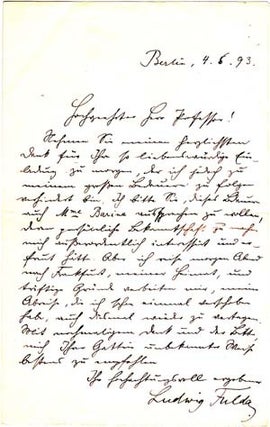 Berlin, 4. 6. 93.
Hochgeehrter Herr Professor!
Nehmen Sie meinen herzlichsten
Dank für Ihre so liebenswürdige Ein-
ladung zu morgen, der ich jedoch zu
meinem großen Bedauern zu folgen
verhindert bin. Ich bitte Sie, dieses Bedauern
auch Mme aussprechen zu wollen,
deren persönliche Bekanntschaft zu machen
mich außerordentlich interessirt und er-
freut hätte. Aber ich reise morgen Abend
nach Frankfurt, meiner Heimat, und
triftige Gründe verbieten mir, meine
Abreise, die ich schon einmal verschoben
habe, auch diesmal wieder zu vertagen.
Mit nochmaligem Dank und der Bitte,
mich Ihrer Gattin unbekannter Weise
bestens zu empfehlen
Ihr hochachtungsvoll ergebener
Ludwig Fulda